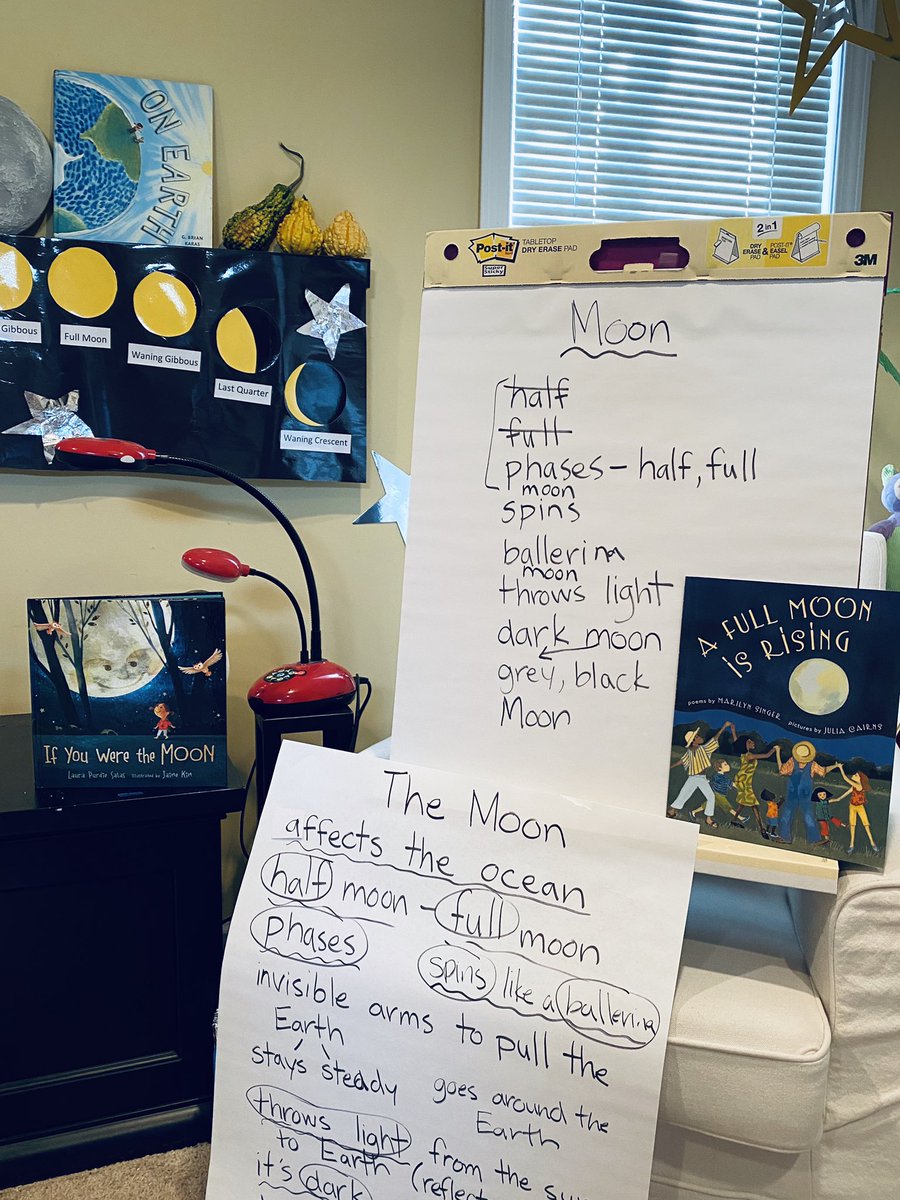 ON EARTH
G. BRIAN KARAS
Gibbous
Full Moon
Waning Gibbous
Last Quarter
Waning Crescent
Post-it
Super Sticky
TABLETOP
DRY ERASE PAD
2 in 1
DRY ERASE PAD
&
POST-IT EASEL PAD
3M
Moon
half
full
phases - half, full
moon
spins
ballerina
moon
throws light
dark moon
grey, black
Moon
IF YOU WERE THE MOON
Laura Purdie Salas Illustrated by Jaime Kim
A FULL MOON
IS RISING
poems by MARILYN SINGER
pictures by JULIA CAIRNS
The Moon
affects the ocean
half moon - full moon
phases
spins like a ballerina
invisible arms to pull the
Earth
stays steady
goes around the
Earth
throws light from the sun
to Earth (reflect
it's dark